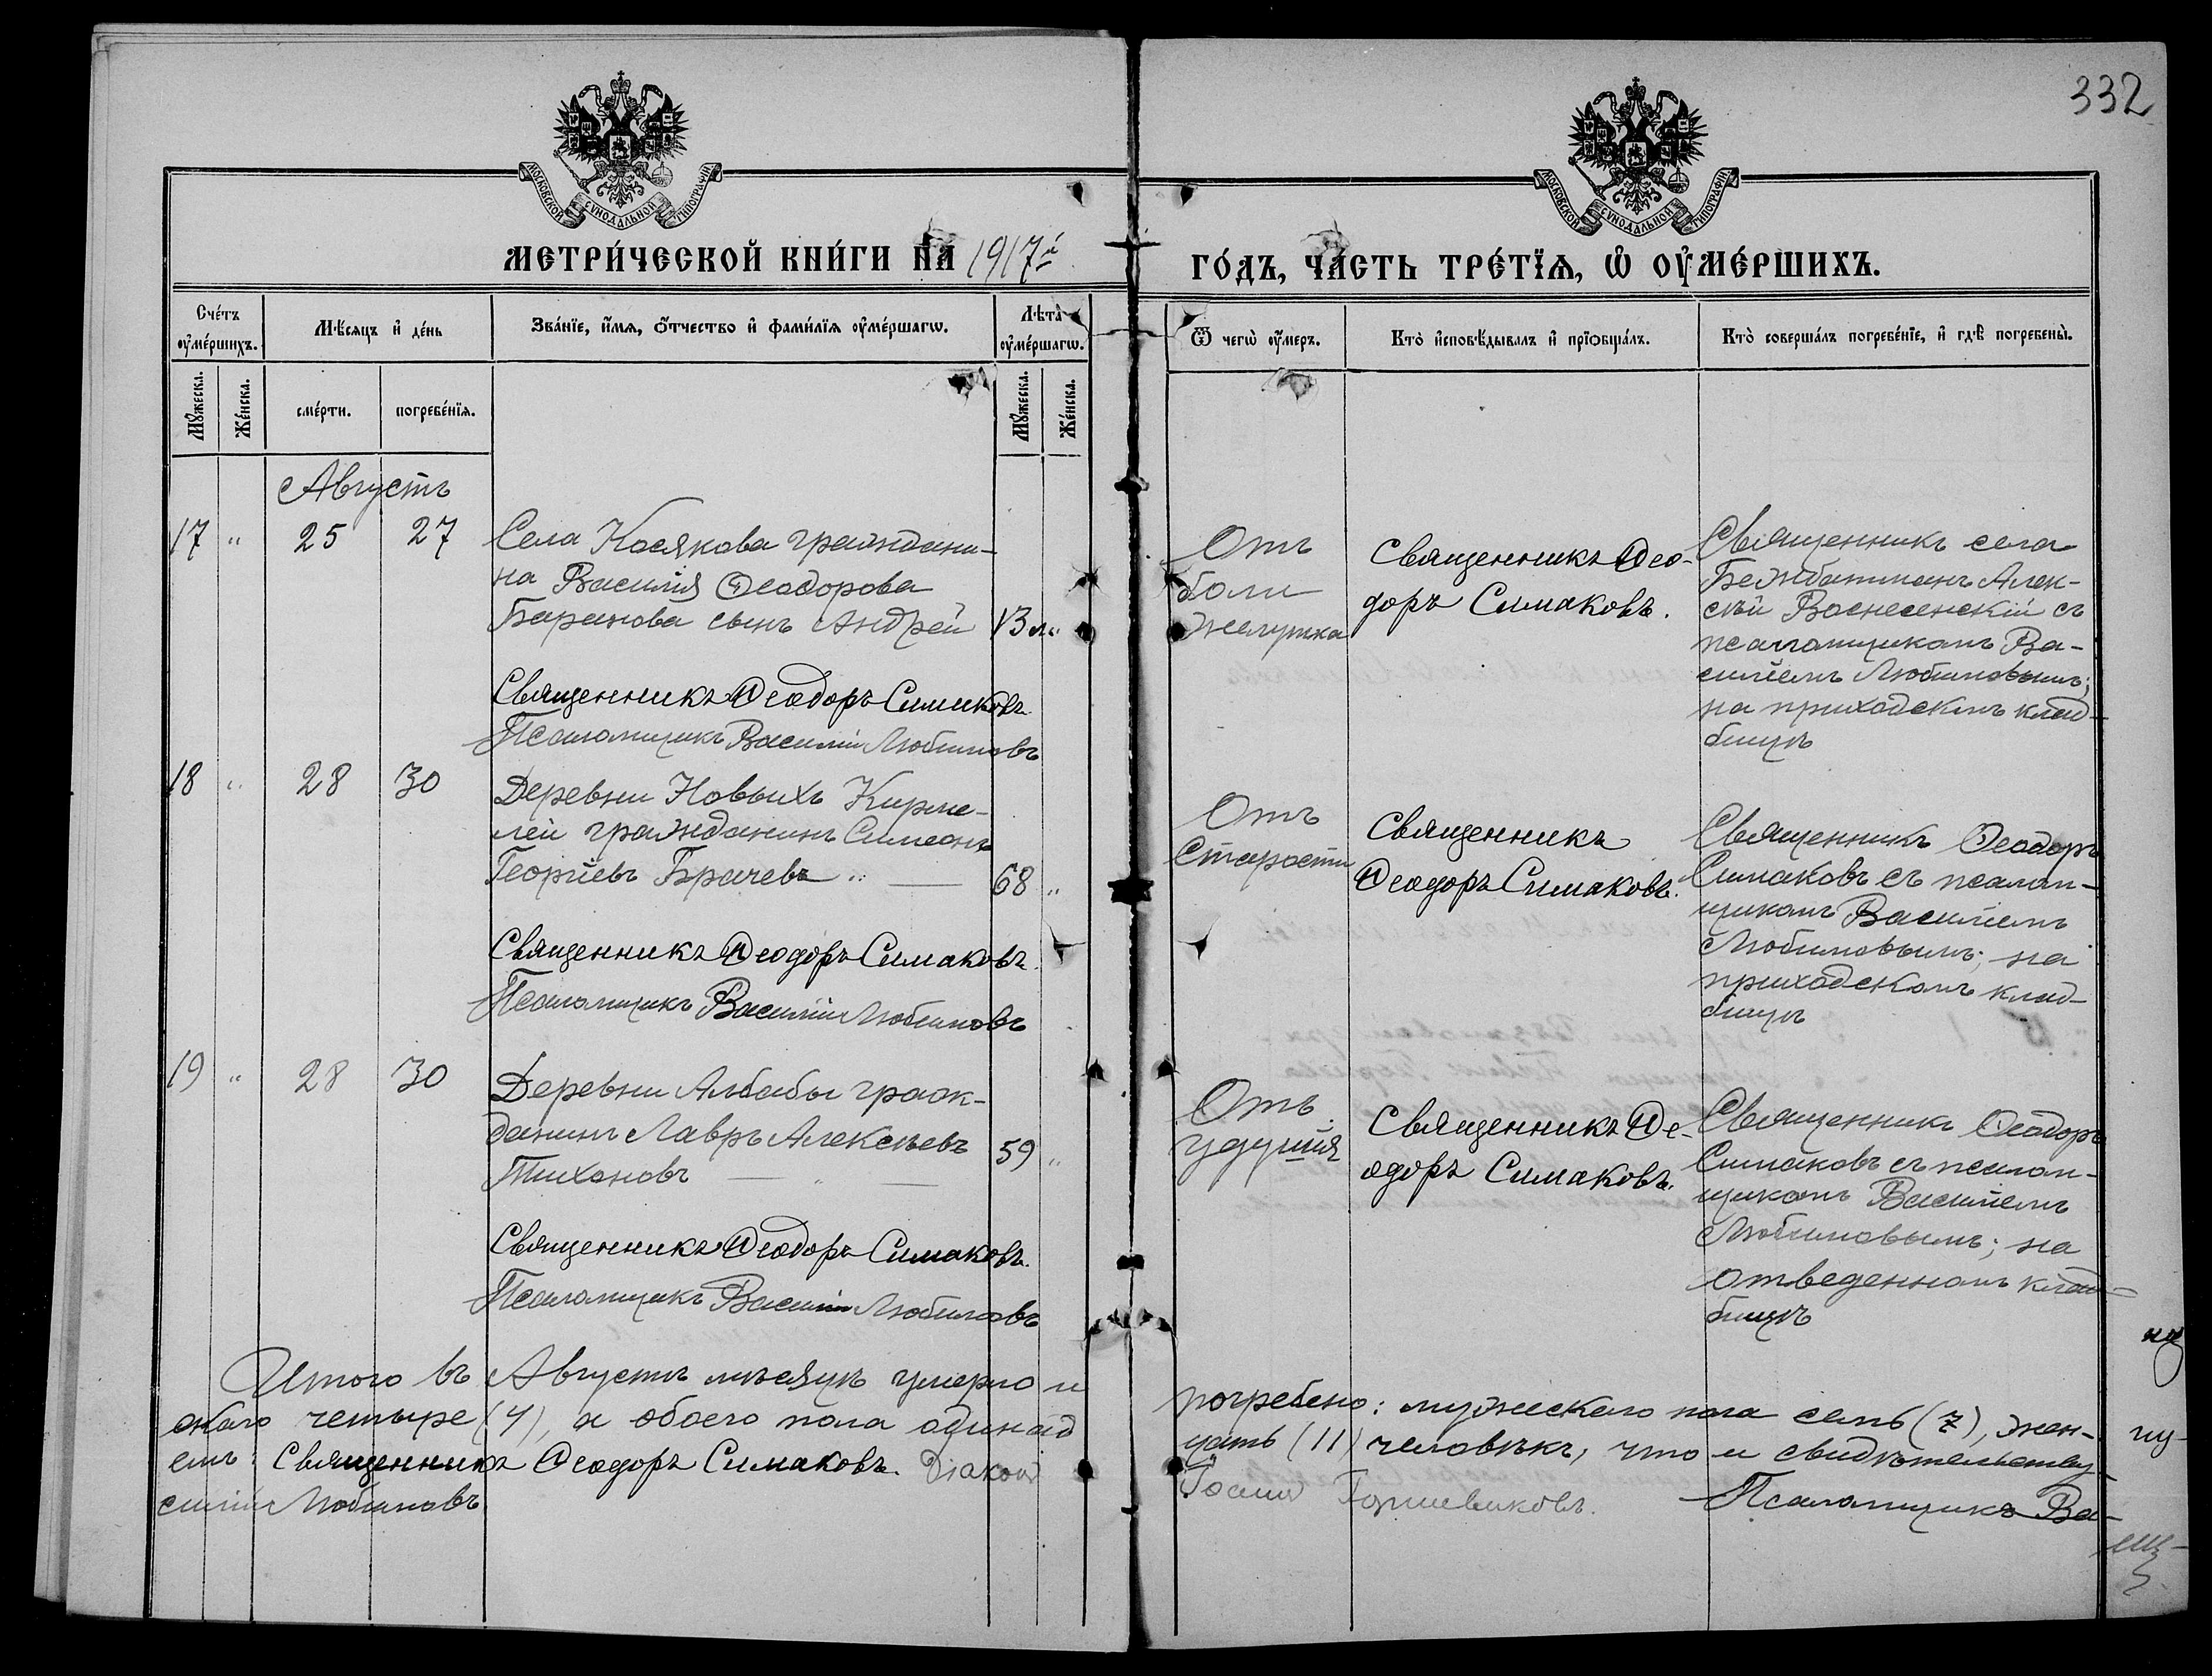 332
МОСКОВСКОЙ СУНОДАЛЬНОЙ ТИПОГРАФІИ
МОСКОВСКОЙ СУНОДАЛЬНОЙ ТИПОГРАФІИ
МЕТРИ́ЧЕСКОЙ КНИ́ГИ НА 1917й
ГО́ДЪ, ЧА́СТЬ ТРЕ́ТЇѦ, Ѡ ОУ҆МЕ́РШИХЪ.
Сче́тъ оу҆ме́ршихъ.
Мѣ́сяцъ и҆ де́нь
Зва́нїе, и҆́мѧ, ѻ҆́тчество и҆ фами́лїѧ оу҆ме́ршагѡ.
Лѣ́та оу҆ме́ршагѡ.
Ѿ чегѡ̀ оу҆́меръ.
Кто̀ и҆сповѣ́дывалъ и҆ прїѡбща́лъ.
Кто̀ соверша́лъ погребе́нїе, и҆ гдѣ̀ погребены̀.
Мꙋ́жеска.
Же́нска.
сме́рти.
погребе́нїѧ.
Мꙋ́жеска.
Же́нска.
Августъ
17 " 25 27
Села Косякова граждани-
на Василія Ѳеодорова
Баранова сынъ Андрей
Священникъ Ѳеодоръ Симаковъ.
Псаломщикъ Василій Любимовъ
Отъ
боли
желудка
Священникъ Ѳео-
доръ Симаковъ.
Священникъ села
Бежбатманъ Алек-
сѣй Вознесенскій съ
псаломщикомъ Ва-
силіемъ Любимовымъ;
на приходскомъ клад-
бищѣ
18 " 28 30
Деревни Новыхъ Кирме-
лей гражданинъ Симеонъ
Георгіевъ Брачевъ " — 68 "
Священникъ Ѳеодоръ Симаковъ.
Псаломщикъ Василій Любимовъ
Отъ
старости
Священникъ
Ѳеодоръ Симаковъ.
Священникъ Ѳеодоръ
Симаковъ съ псалом-
щикомъ Василіемъ
Любимовымъ; на
приходскомъ клад-
бищѣ
19 " 28 30
Деревни Албабы граж-
данинъ Лавръ Алексѣевъ 59 "
Тихоновъ — " —
Священникъ Ѳеодоръ Симаковъ.
Псаломщикъ Василій Любимовъ
Отъ
удушія
Священникъ Ѳе-
одоръ Симаковъ.
Священникъ Ѳеодоръ
Симаковъ съ псалом-
щикомъ Василіемъ
Любимовымъ; на
отведенномъ клад-
бищѣ
Итого въ Августѣ мѣсяцѣ умерло и погребено: мужескаго пола семь (7), жен-
скаго четыре (4), а обоего пола одинад цать (11) человѣкъ, что и свидѣтельству-
емъ: Священникъ Ѳеодоръ Симаковъ. Діаконъ Псаломщикъ Ва-
силій Любимовъ.